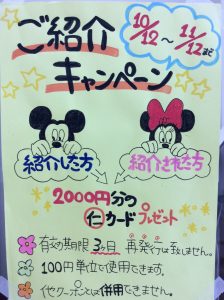 ご紹介
キャンペーン
10/12～11/12まで
紹介した方
紹介された方
2000円分の
仁カードプレゼント
有効期限 3ヶ月 再発行は致しません。
100円単位で使用できます。
他クーポンとは併用できません。